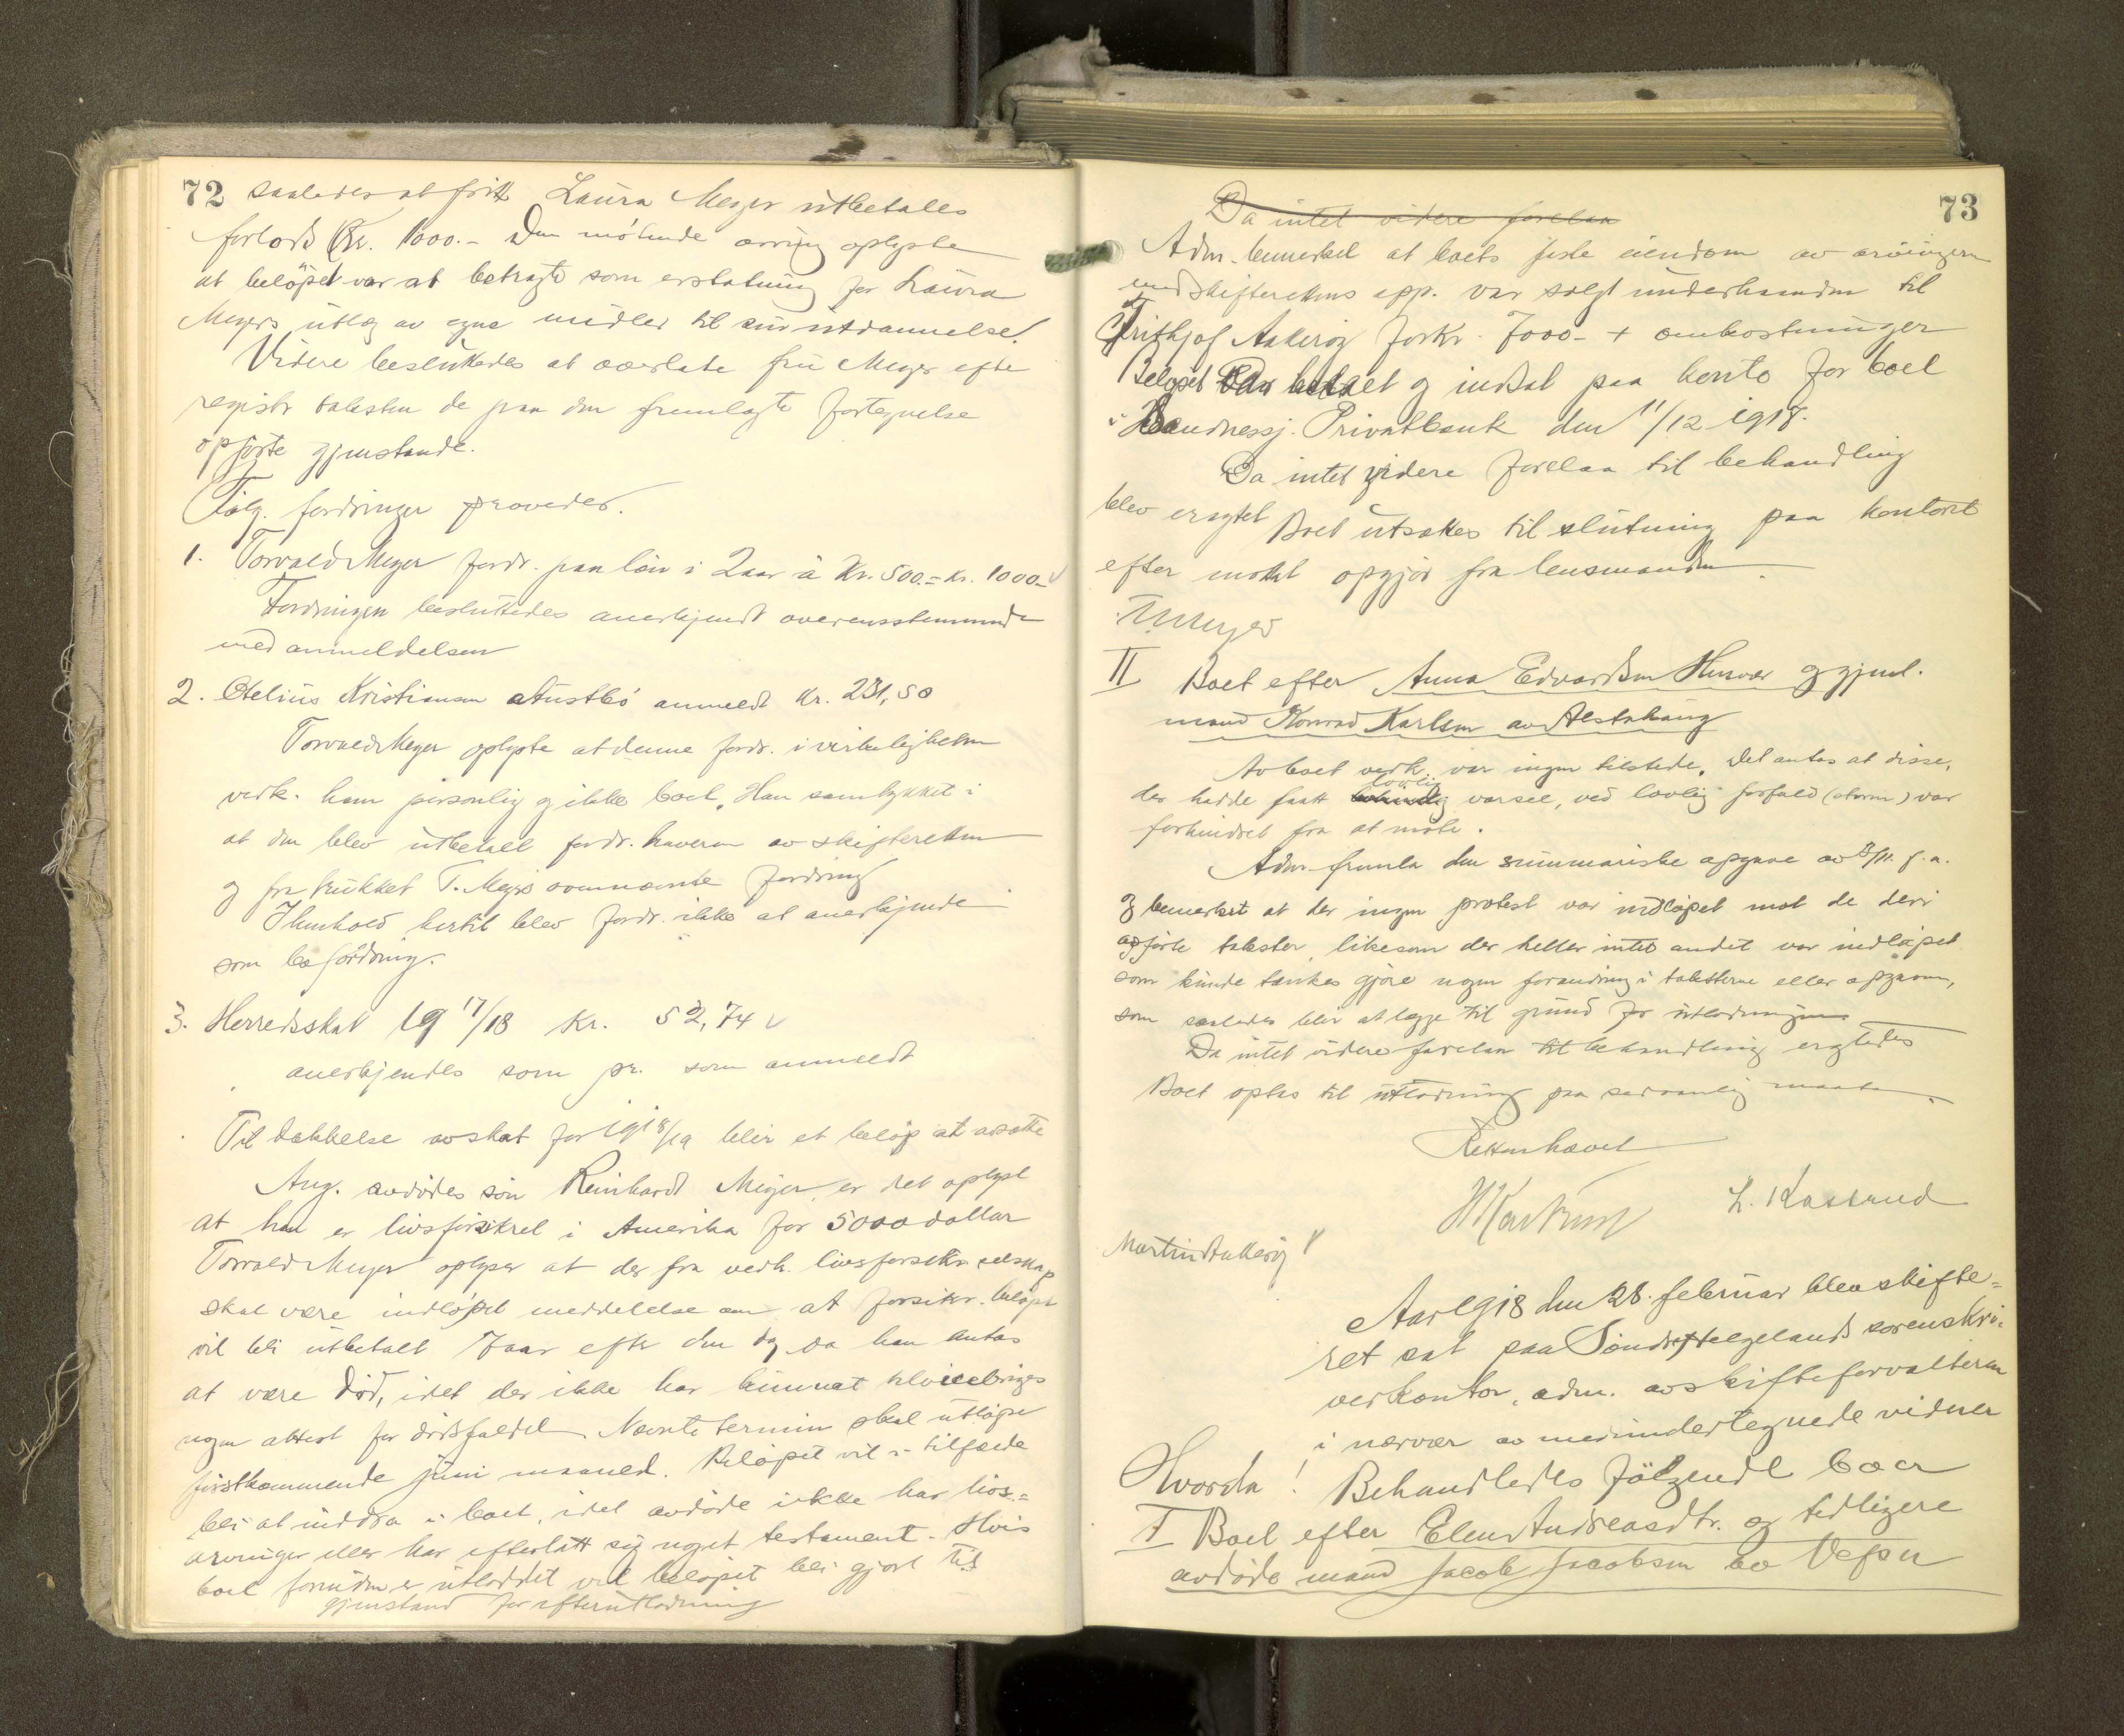 72 saaledes at frk Laura Meyer utbetales
forlods Kr. 1000.- Den mötende arving oplyste
at belöpet var at betragte som erstatning for Laura
Meyers utlæg av egne midler til sin utdannelse.
Videre besluttedes at overlate frk Meyer efter
registr taksten de paa den fremlagte fortegnelse
opförte gjenstande.
Følg. fordringer prøvedes.
1. Torvald Meyer fordr. paa løn i 2 aar à Kr. 500.- = Kr. 1000.-
Fordringen besluttedes anerkjendt overensstemmende
med anmeldelsen
2. Otelius Kristiansen Austbö anmeldt Kr. 231,50
Torvald Meyer oplyste at denne fordr. i virkeligheten
vedk. ham personlig og ikke boet. Han samtykket i
at den blev utbetalt fordr. haveren av skifteretten
og fratrukket T. Meyers ovennævnte fordring
I henhold hertil blev fordr. ikke at anerkjende
som bofordring.
3. Herredsskat 19 17/18 Kr. 52,74
anerkjendes som pr. som anmeldt
Til dækkelse av skat for 1918/19 blir et beløp at avsætte
Ang. avdödes sön Reinhardt Meyer, er det oplyst
at han er livsforsikret i Amerika for 5000 dollar
Torvald Meyer oplyser at der fra vedk. livsforsikr. selskap
skal være indlöpet meddelelse om at forsikr. beløpet
vil bli utbetalt 7 aar efter den dag da han antas
at være död, idet der ikke har kunnet tilveiebringes
nogen attest for dödsfaldet. Nævnte termin skal utløpe
förstkommende juni maaned. Beløpet vil i tilfælde
bli at inddra i boet, idet avdöde ikke har livs-
arvinger eller har efterlatt sig noget testament. Hvis
boet forinden er utloddet vil beløpet bli gjort til
gjenstand for efterutlodning
73
Da intet videre forelaa
Adm. bemerket at boets faste eiendom av arvingerne
med skifterettens app. var solgt underhaanden til
Frithjof Aakerøy for Kr. 7000- + omkostninger
Beløpet var betalt og indsat paa konto for boet
i Sandnessj. Privatbank den 11/12 1917.
Da intet videre forelaa til behandling
blev eragtet Boet utsættes til slutning paa kontoret
efter mottat opgjør fra lensmanden.
T Meyer
II Boet efter Anna Edvardsen Husvær og gjenl.
mand Konrad Karlsen av Alstahaug
Av boet vedk. var ingen tilstede. Det antas at disse,
der hadde faatt lovlig varsel, ved lovlig forfald (storm) var
forhindret fra at möte.
Adm. fremla den summariske opgave av /11. f.a.
og bemerket at der ingen protest var indløpet mot de deri
opførte takster, likesom der heller intet andet var indløpet
som kunde tænkes gjøre nogen forandring i taksterne eller opgaven,
som saaledes blir at lægge til grund for utlodningen
Da intet videre forelaa til behandling eragtedes
Boet optas til utlodning paa sedvanlig maate.
Retten hævet
L. Kaasrud
Martin Aakerøy
Aar 1918 den 28. februar blev skifte-
ret sat paa Söndre Helgelands sorenskri-
verkontor, adm. av skifteforvalteren
i nærvær av medundertegnede vidner
Hvorda! Behandledes følgende boer
I Boet efter Elen Andreasdtr. og tidligere
avdöde mand Jacob Jacobsen bo Vefsn